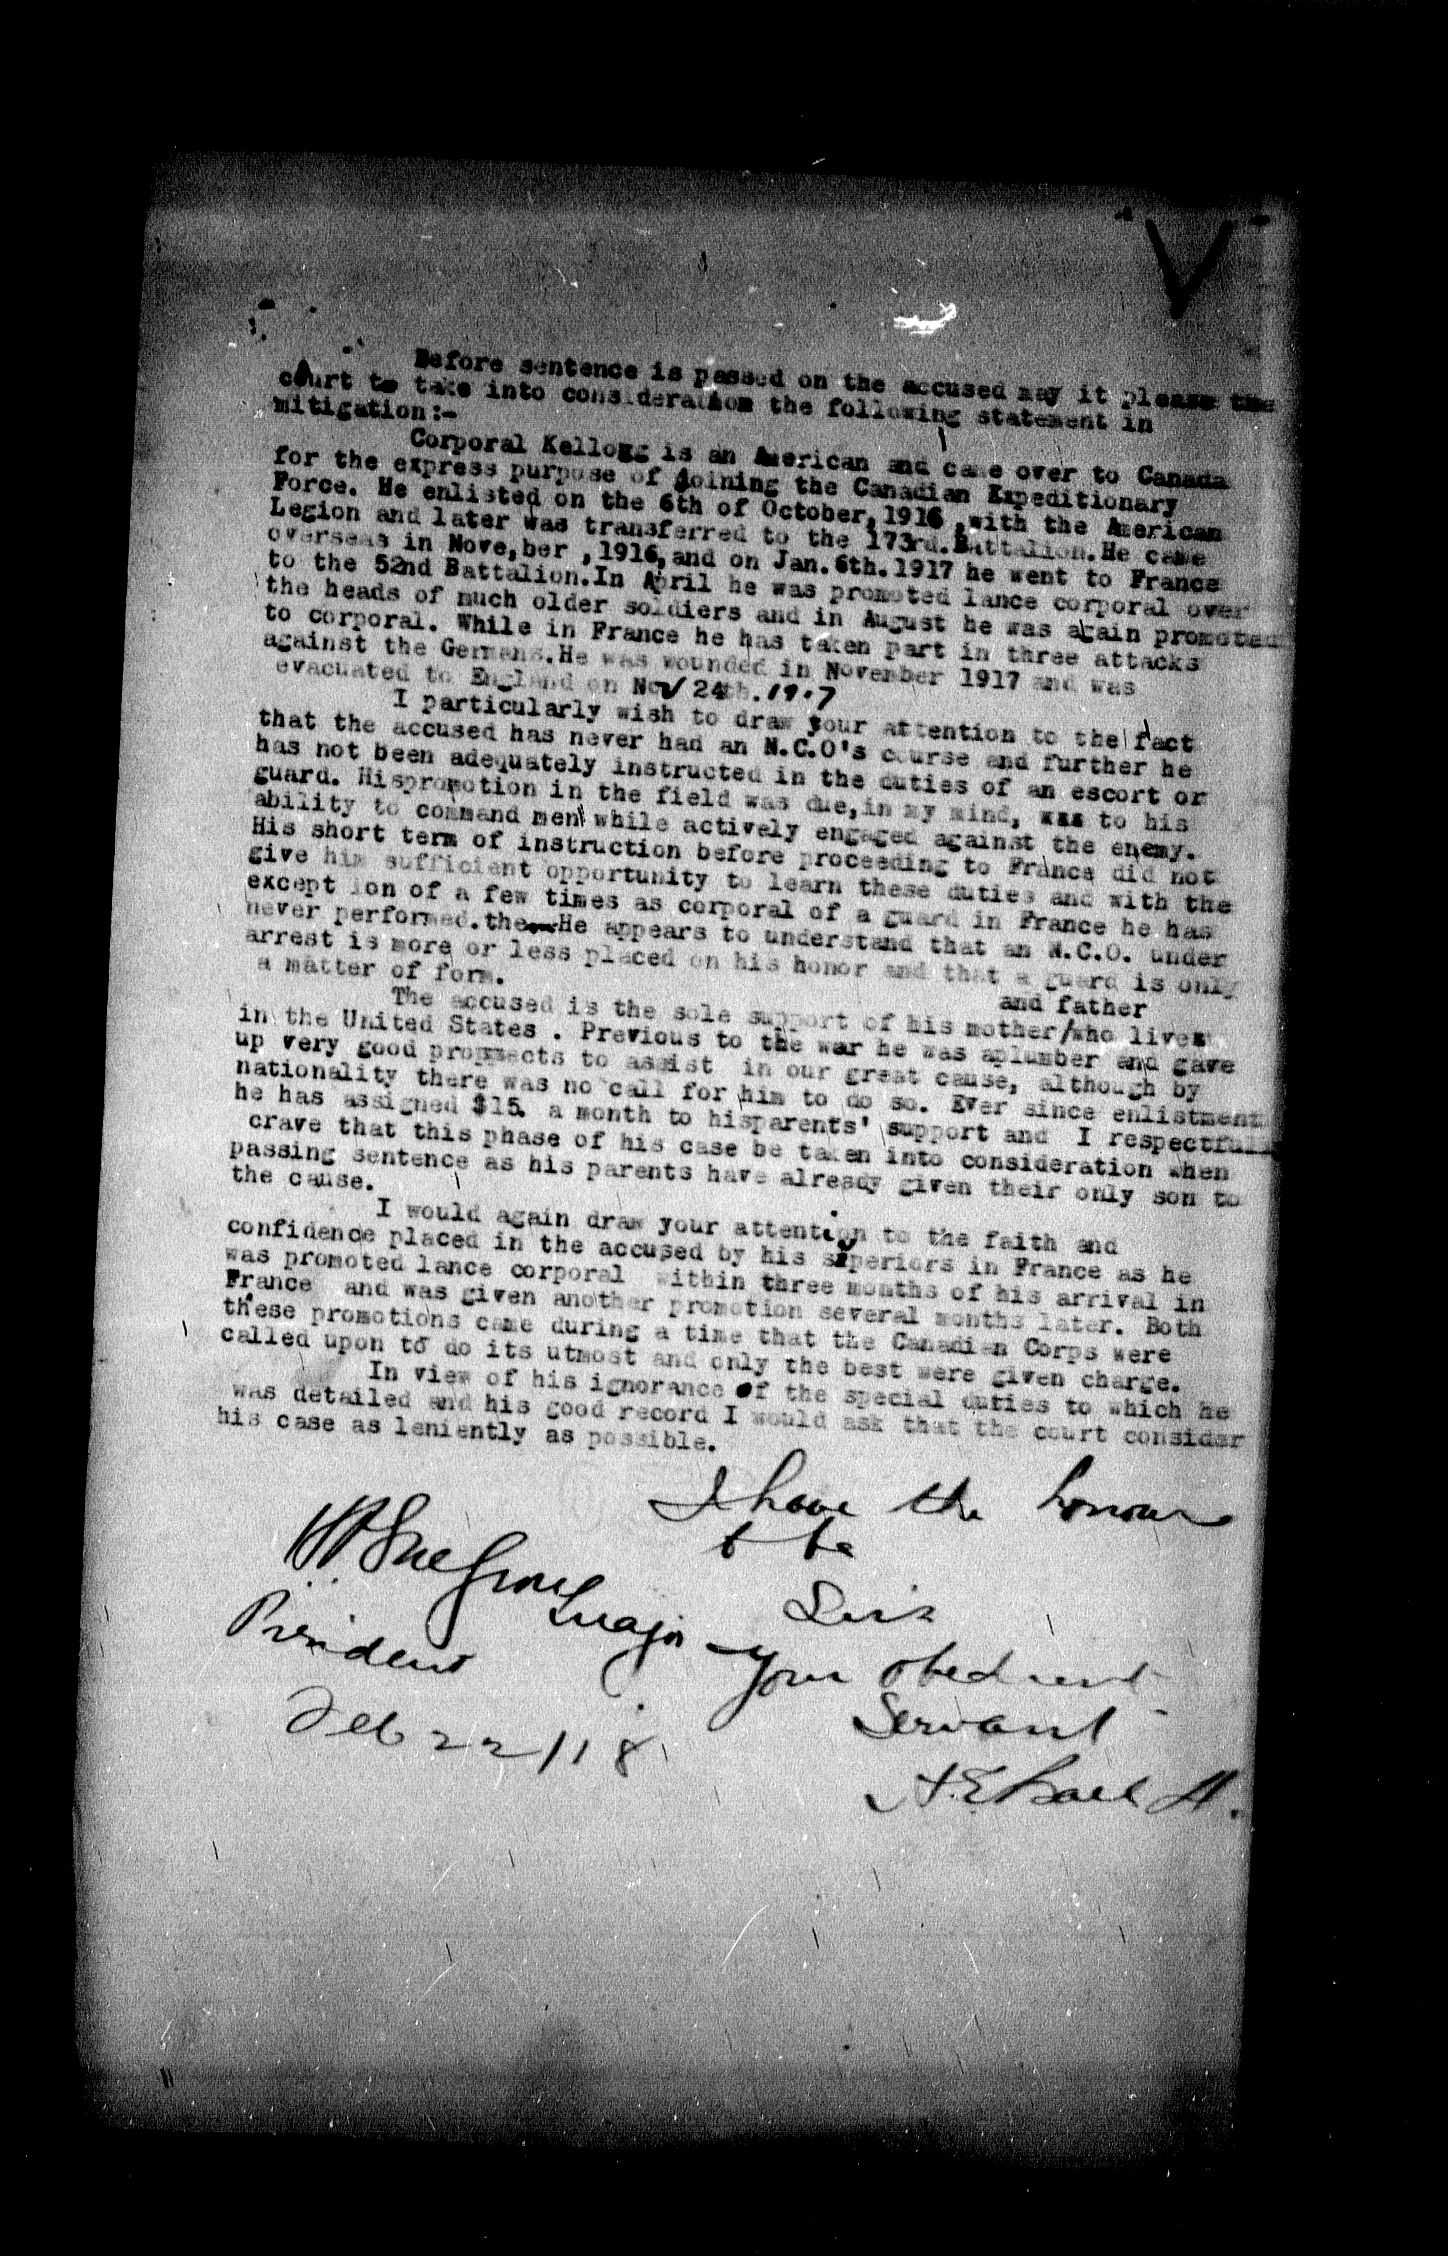 V
Before sentence is passed on the accused may it please the
court to take into consideration the following statement in
mitigation:-
Corporal Kellogg is an American and came over to Canada
for the express purpose of joining the Canadian Expeditionary
Force. He enlisted on the 6th of October, 1916 ,with the American
Legion and later was transferred to the 173rd.Battalion.He came
overseas in Nove,ber ,1916,and on Jan.6th.1917 he went to France
to the 52nd Battalion.In April he was promoted lance corporal over
the heads of much older soldiers and in August he was again promoted
to corporal. While in France he has taken part in three attacks
against the Germans.He was wounded in November 1917 and was
evacuated to England on Nov 24th.1917
I particularly wish to draw your attention to the fact
that the accused has never had an N.C.O's course and further he
has not been adequately instructed in the duties of an escort or
guard. Hispromotion in the field was due,in my mind, was to his
ability to command men while actively engaged against the enemy.
His short term of instruction before proceeding to France did not
give him sufficient opportunity to learn these duties and with the
except ion of a few times as corporal of a guard in France he has
never performed.the He appears to understand that an N.C.O. under
arrest is more or less placed on his honor and that a guard is only
a matter of form.
and father
The accused is the sole support of his mother/who lives
in the United States . Previous to the war he was aplumber and gave
up very good prospects to assist in our great cause, although by
nationality there was no call for him to do so. Ever since enlistment
he has assigned $15. a month to hisparents' support and I respectfull
crave that this phase of his case be taken into consideration when
passing sentence as his parents have already given their only son to
the cause.
I would again draw your attention to the faith and
confidence placed in the accused by his superiors in France as he
was promoted lance corporal within three months of his arrival in
France and was given another promotion several months later. Both
these promotions came during a time that the Canadian Corps were
called upon to do its utmost and only the best were given charge.
In view of his ignorance of the special duties to which he
was detailed and his good record I would ask that the court consider
his case as leniently as possible.
I have the honour
to be
Sir
Your obedient
Servant
A.E.
Major
President
Feb 22/18